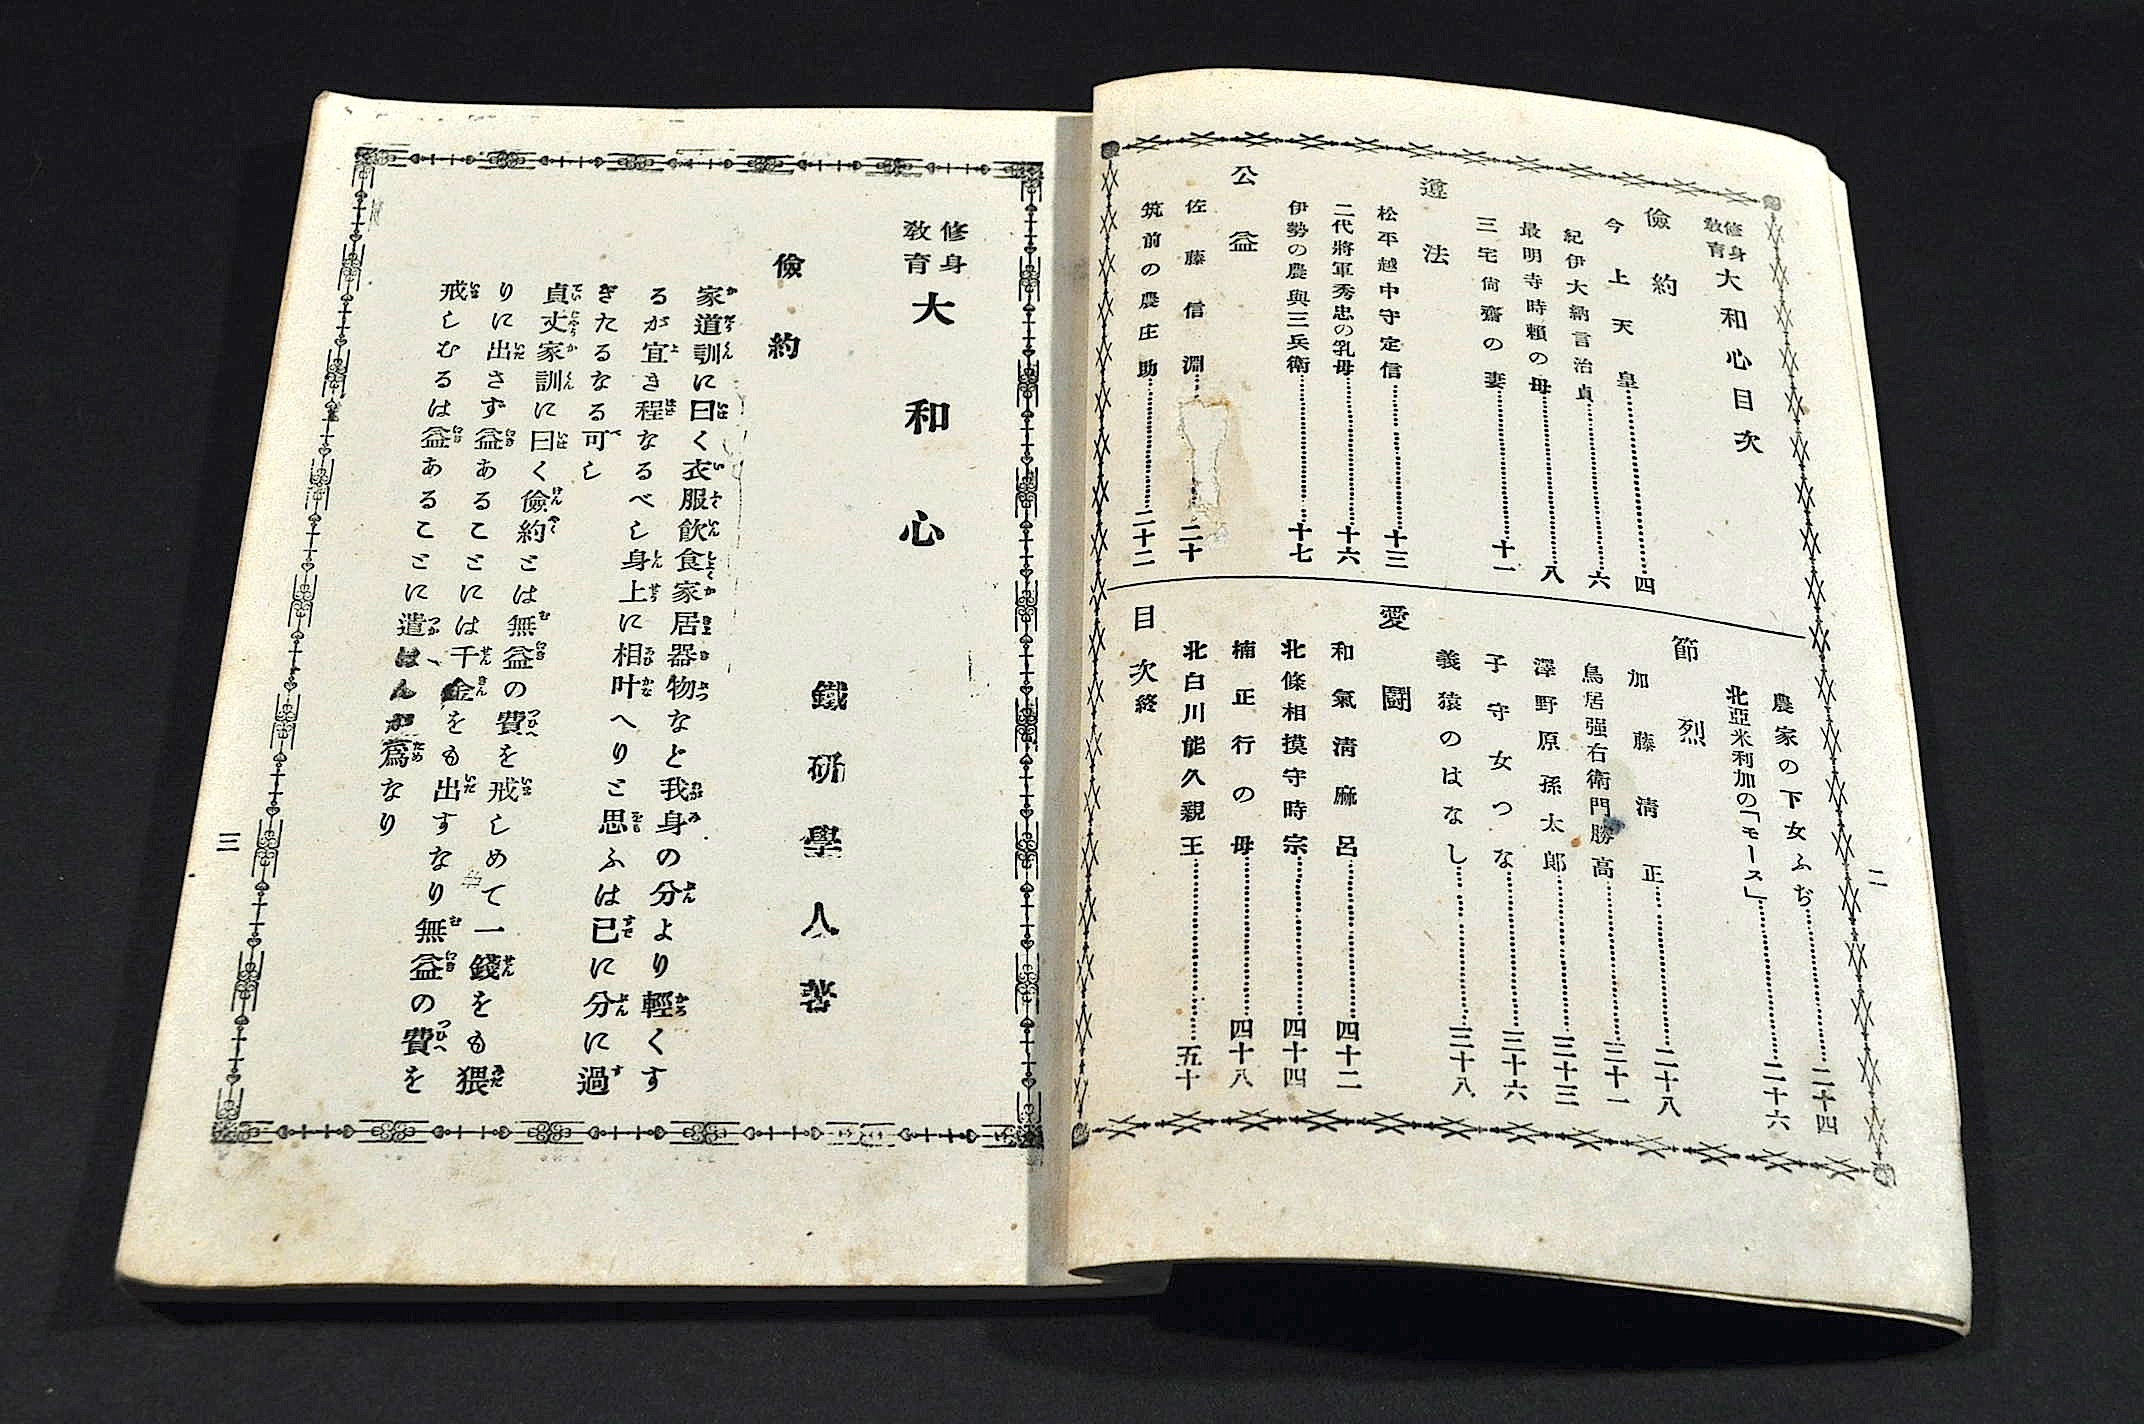 修身教育 大和心目次
儉約
今上天皇……四
紀伊大納言治貞……六
最明寺時賴の母……八
三宅尙齋の妻……十一
遵法
松平越中守定信……十三
二代將軍秀忠の乳母……十六
伊勢の農與三兵衛……十七
公益
佐藤信淵……二十
筑前の農庄助……二十二
農家の下女ふぢ……二十四
北亞米利加の「モース」……二十六
節烈
加藤淸正……二十八
鳥居强右衛門勝高……三十一
澤野原孫太郎……三十三
子守女つな……三十六
義猿のはなし……三十八
愛國
和氣淸麻呂……四十二
北條相摸守時宗……四十四
楠正行の母……四十八
北白川能久親王……五十
目次終
二
修身教育 大和心
鐵研學人著
儉約
家道訓に曰く衣服飮食家居器物など我身の分より輕くす
るが宜き程なるべし身上に相叶へりと思ふは已に分に過
ぎたるなる可し
貞丈家訓に曰く儉約とは無益の費を戒しめて一錢をも猥
りに出さず益あることには千金をも出すなり無益の費を
戒しむるは益あることに遣はん爲なり
三